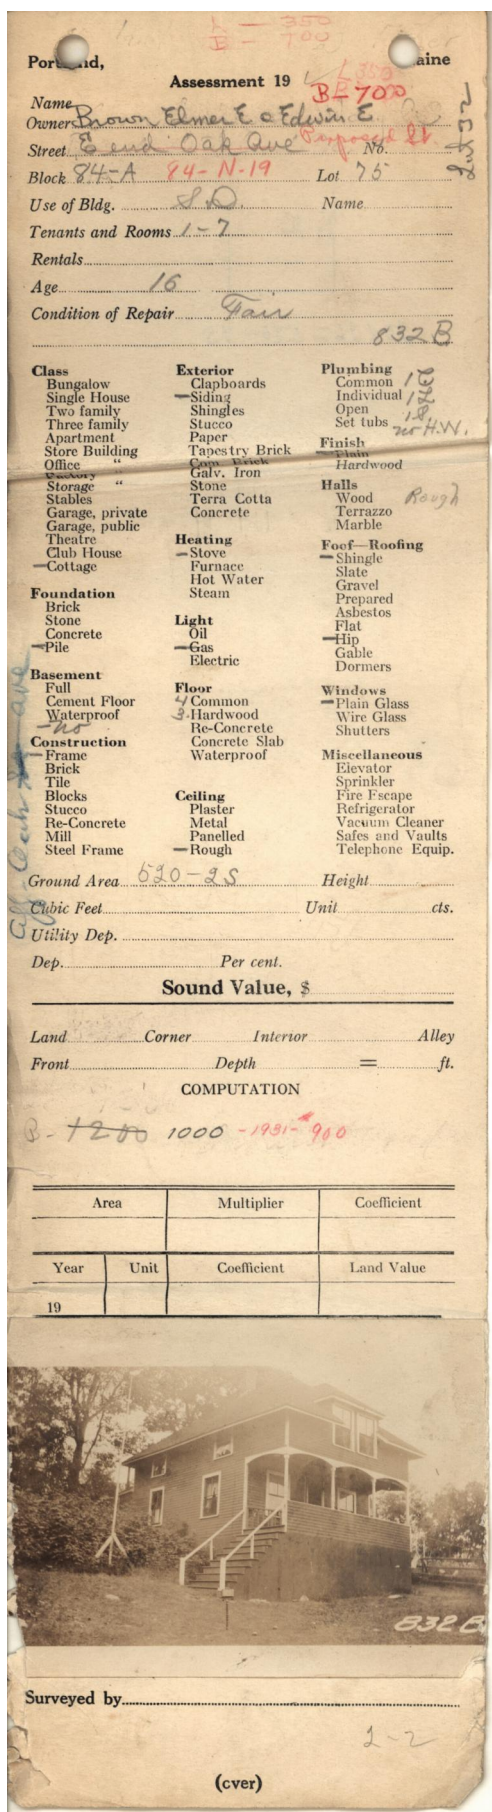 L — 350
B — 700
Portland, Maine
Assessment 19
L 350
B - 700
Name
Owner Brown Elmer E & Edwin E
Street E end Oak Ave Proposed St. No.
Block 84-A 84-N-19 Lot 75
Use of Bldg. S.D. Name
Tenants and Rooms 1-7
Rentals
Age 16
Condition of Repair Fair
832 B
Class
Bungalow
Single House
Two family
Three family
Apartment
Store Building
Office "
Factory
Storage "
Stables
Garage, private
Garage, public
Theatre
Club House
- Cottage
Foundation
Brick
Stone
Concrete
- Pile
Basement
Full
Cement Floor
Waterproof
- no
Construction
- Frame
Brick
Tile
Blocks
Stucco
Re-Concrete
Mill
Steel Frame
Exterior
Clapboards
- Siding
Shingles
Stucco
Paper
Tapestry Brick
Com. Brick
Galv. Iron
Stone
Terra Cotta
Concrete
Heating
- Stove
Furnace
Hot Water
Steam
Light
Oil
- Gas
Electric
Floor
4 Common
3 Hardwood
Re-Concrete
Concrete Slab
Waterproof
Ceiling
Plaster
Metal
Panelled
- Rough
Plumbing
Common
Individual
Open
Set tubs 1 S.
no H.W.
Finish
- Plain
Hardwood
Halls
Wood Rough
Terrazzo
Marble
Foof—Roofing
- Shingle
Slate
Gravel
Prepared
Asbestos
Flat
- Hip
Gable
Dormers
Windows
- Plain Glass
Wire Glass
Shutters
Miscellaneous
Elevator
Sprinkler
Fire Escape
Refrigerator
Vacuum Cleaner
Safes and Vaults
Telephone Equip.
Ground Area 520-2S Height
Cubic Feet Unit cts.
Utility Dep.
Dep. Per cent.
Sound Value, $
Land Corner Interior Alley
Front Depth = ft.
COMPUTATION
B - 1200 1000 - 1931 - 900
Area Multiplier Coefficient
Year Unit Coefficient Land Value
19
832 B
Surveyed by
2-2
(cver)